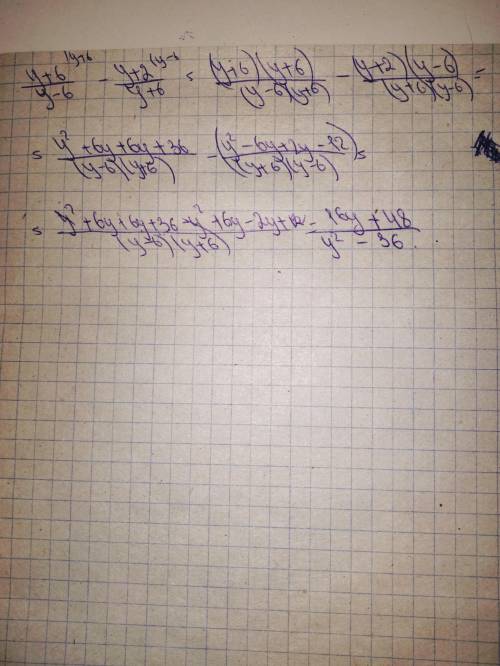 (y+6)/(y-6) |y+6 - (y+2)/(y+6) |y-6 = (y+6)(y+6)/(y-6)(y+6) - (y+2)(y-6)/(y+6)(y-6) =
= y² + 6y + 6y + 36/(y-6)(y+6) - (y² - 6y + 2y - 12)/(y+6)(y-6) =
= y² + 6y + 6y + 36 - y² + 6y - 2y + 12/(y-6)(y+6) = 16y + 48/y² - 36.